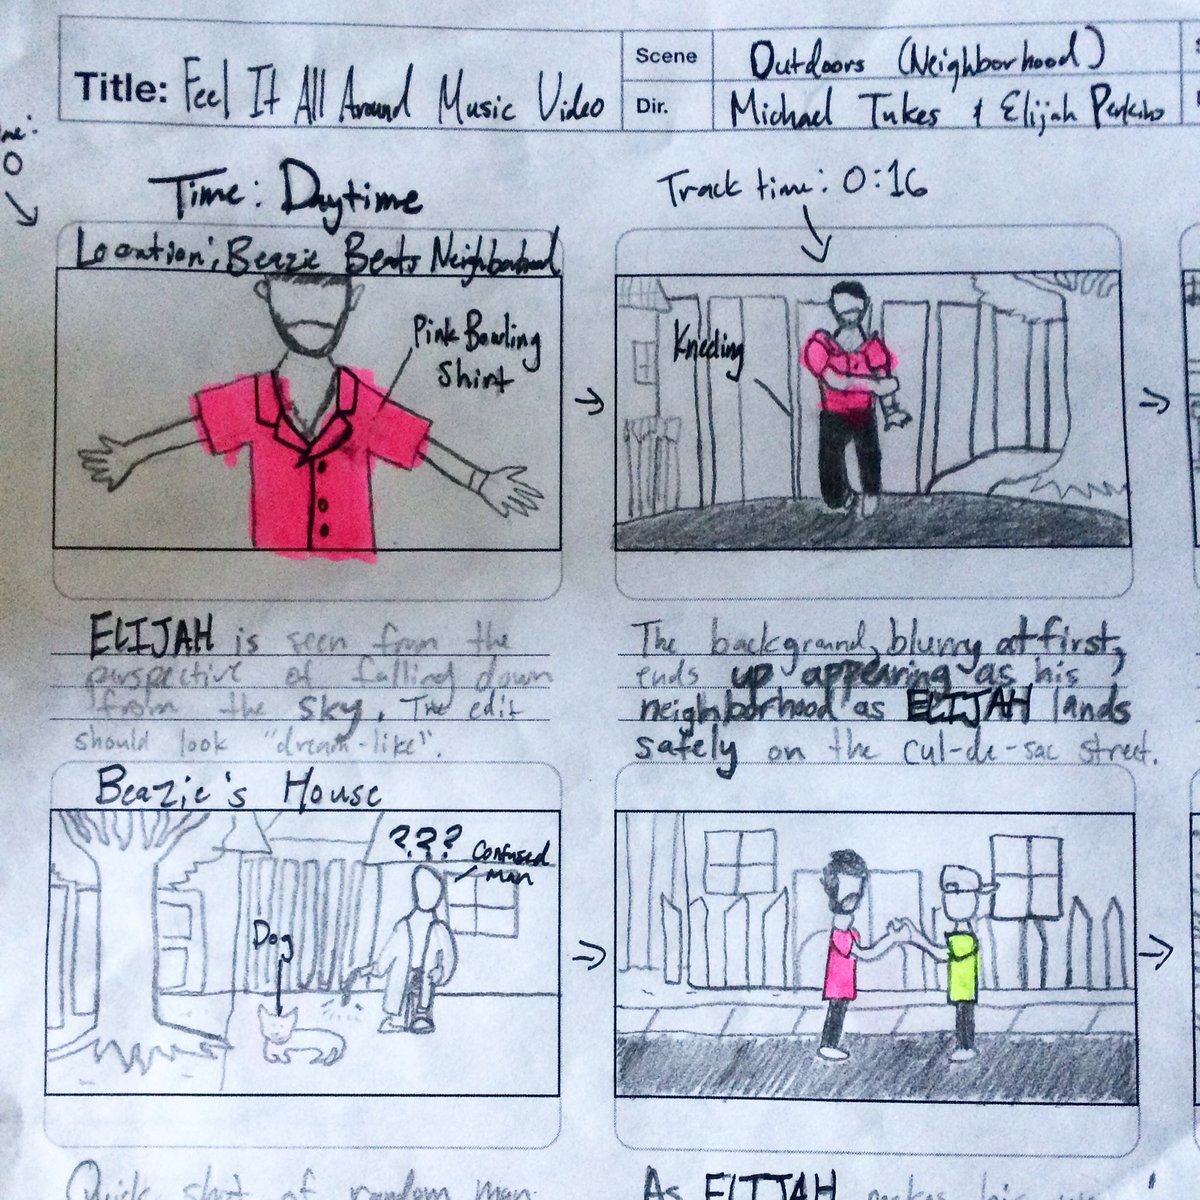 Title: Feel It All Around Music Video
Scene Outdoors (Neighborhood)
Dir. Michael Tukes & Elijah Perkins
Time: Daytime
Track time: 0:16
Location: Beazie Beats Neighborhood
Pink Bowling
Shirt
Kneeling
ELIJAH is seen from the
perspective of falling down
from the sky. The edit
should look "dream-like".
The background, blurry at first,
ends up appearing as his
neighborhood as ELIJAH lands
safely on the cul-de-sac street.
Beazie's House
???
Confused
man
Dog
Quick shot of random man
As ELIJAH makes his